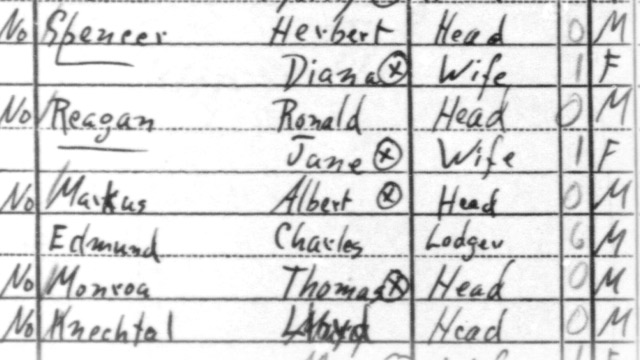 No Spencer Herbert Head 0 M
Diana ⓧ Wife 1 F
No Reagan Ronald Head 0 M
Jane ⓧ Wife 1 F
No Markus Albert ⓧ Head 0 M
Edmund Charles Lodger 6 M
No Monroa Thomas ⓧ Head 0 M
No Knechtal Head 0 M